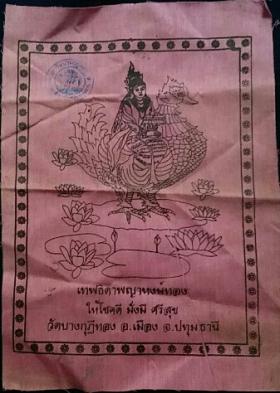 เทพธิดาพญาหงษ์ทอง
ให้โชคดี มั่งมี ศรีสุข
วัดบางกุฎีทอง อ.เมือง จ.ปทุมธานี